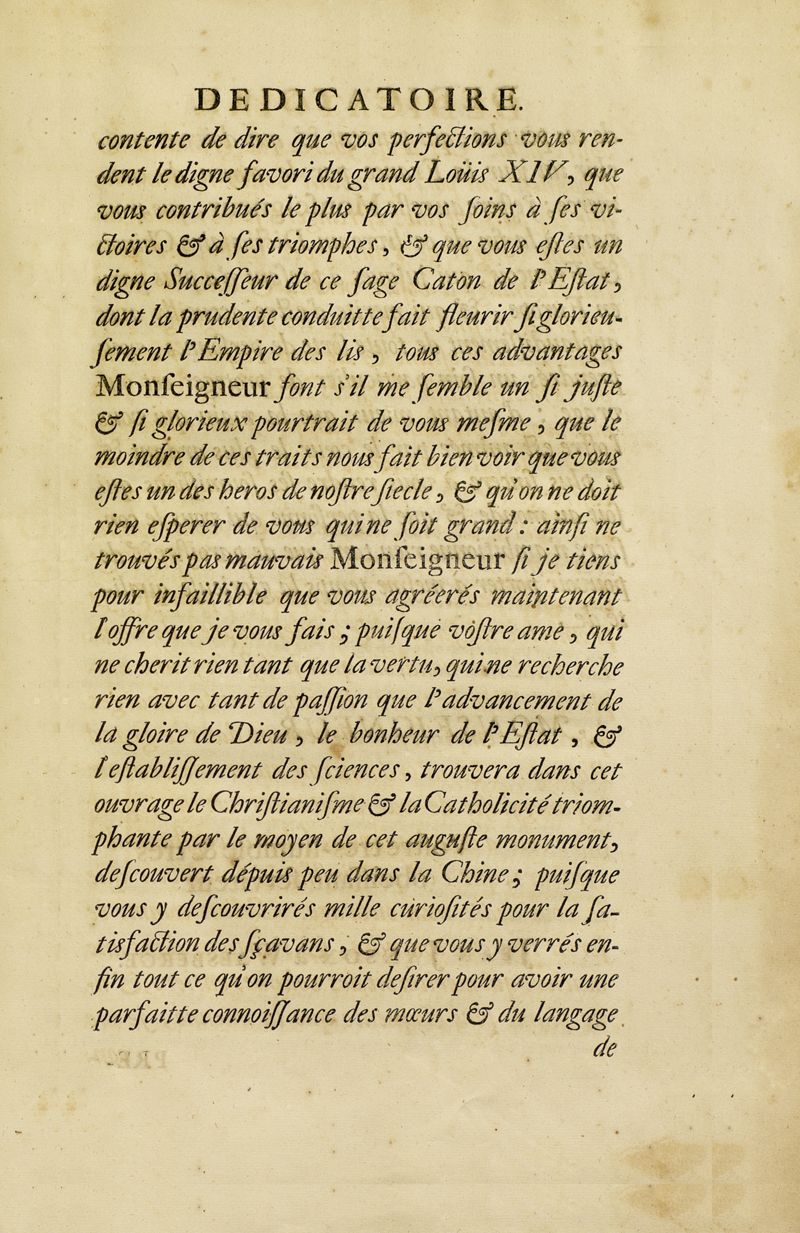 DEDICATOIRE.
contente de dire que vos perfections vous ren-
dent le digne favori du grand Loüis XIV, que
vous contribués le plus par vos ſoins à ſes vi-
ctoires & à ſes triomphes, & que vous eſtes un
digne Succeſſeur de ce ſage Caton de l'Eſtat,
dont la prudente conduitte fait fleurir ſi glorieu-
ſement l'Empire des lis, tous ces advantages
Monſeigneur ſont s'il me ſemble un ſi juſte
& ſi glorieux pourtrait de vous meſme, que le
moindre de ces traits nous fait bien voir que vous
eſtes un des heros de noſtre ſiecle, & qu'on ne doit
rien eſperer de vous qui ne ſoit grand: ainſi ne
trouvés pas mauvais Monſeigneur ſi je tiens
pour infaillible que vous agréerés maintenant
l'offre que je vous fais; puiſque vôſtre ame, qui
ne cherit rien tant que la vertu, qui ne recherche
rien avec tant de paſſion que l'advancement de
la gloire de Dieu, le bonheur de l'Eſtat, &
l'eſtabliſſement des ſciences, trouvera dans cet
ouvrage le Chriſtianiſme & la Catholicité triom-
phante par le moyen de cet auguſte monument,
deſcouvert dépuis peu dans la Chine; puiſque
vous y deſcouvrirés mille curioſités pour la ſa-
tisfaction des ſçavans, & que vous y verrés en-
fin tout ce qu'on pourroit deſirer pour avoir une
parfaitte connoiſſance des mœurs & du langage
de